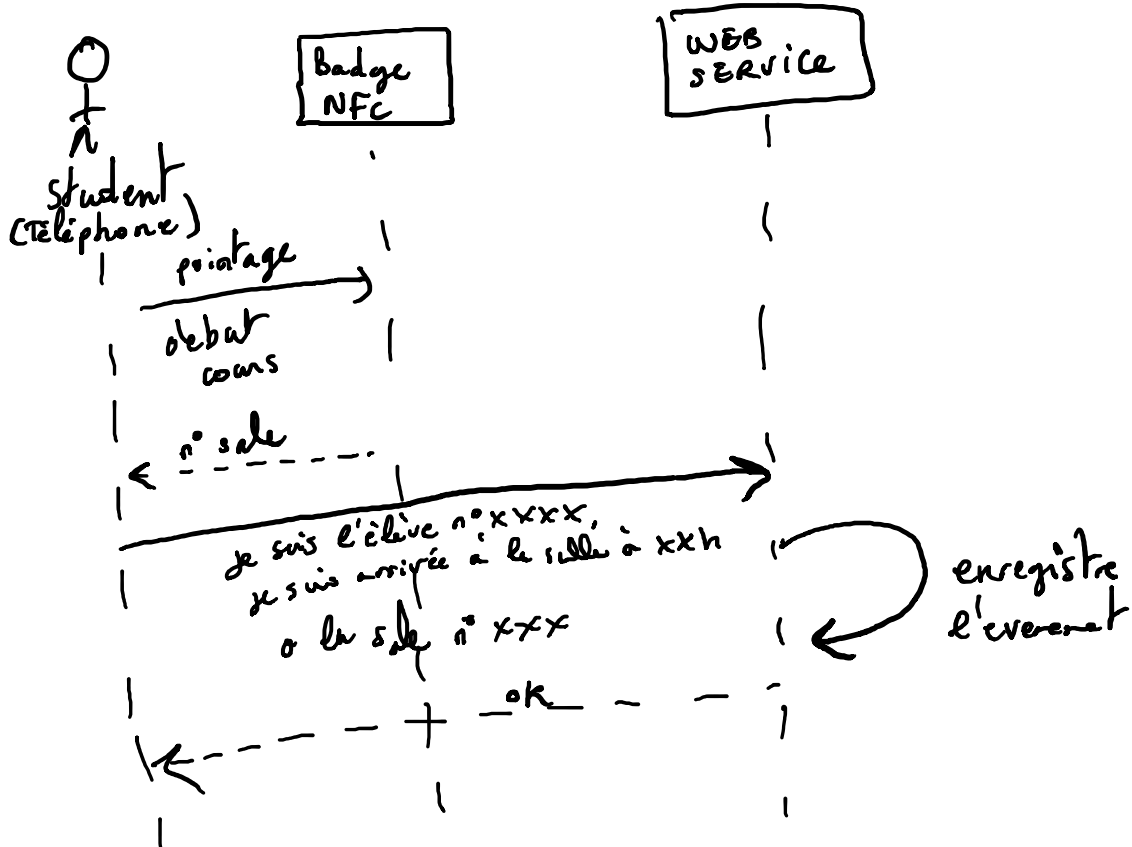 Badge
NFC
WEB
SERVICE
Student
(Téléphone)
pointage
debut
cours
n° sale
je suis l'élève n° XXXX,
je suis arrivée à la salle à XXh
a la sale n° XXX
enregistre
l'evenement
ok